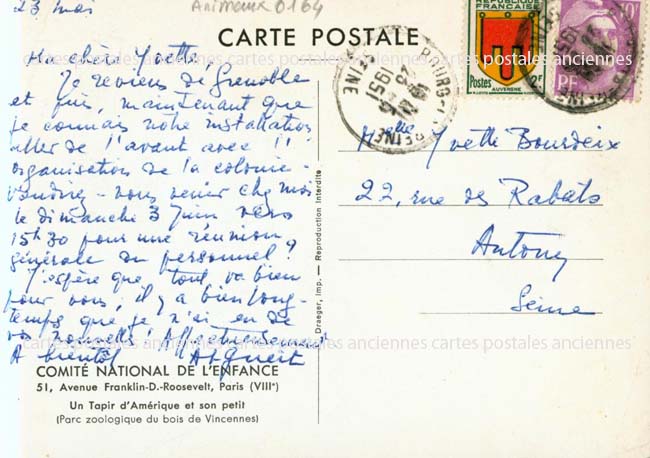 23 mai
Animaux 0164
CARTE POSTALE
Ma chère Yvette
Je reviens de Grenoble
et puis, maintenant que
je connais notre installation
aller de l'avant avec l'
organisation de la colonie-
Voudriez-vous venir chez moi
le dimanche 3 Juin vers
15h30 pour une réunion
générale du personnel?
J'espère que tout va bien
pour vous; il y a bien long-
temps que je n'ai eu de
vos nouvelles! Affectueusement
A bientôt
COMITÉ NATIONAL DE L'ENFANCE
51, Avenue Franklin-D.-Roosevelt, Paris (VIIIe)
Un Tapir d'Amérique et son petit
(Parc zoologique du bois de Vincennes)
Draeger, Imp. — Reproduction Interdite
RÉPUBLIQUE
FRANÇAISE
Postes 2F
AUVERGNE
10F
PF
BOURG
1951
SEINE
Mlle Yvette Bourdeix
22, rue des Rabats
Antony
Seine
cartes postales anciennes cartes postales anciennes cartes postales anciennes